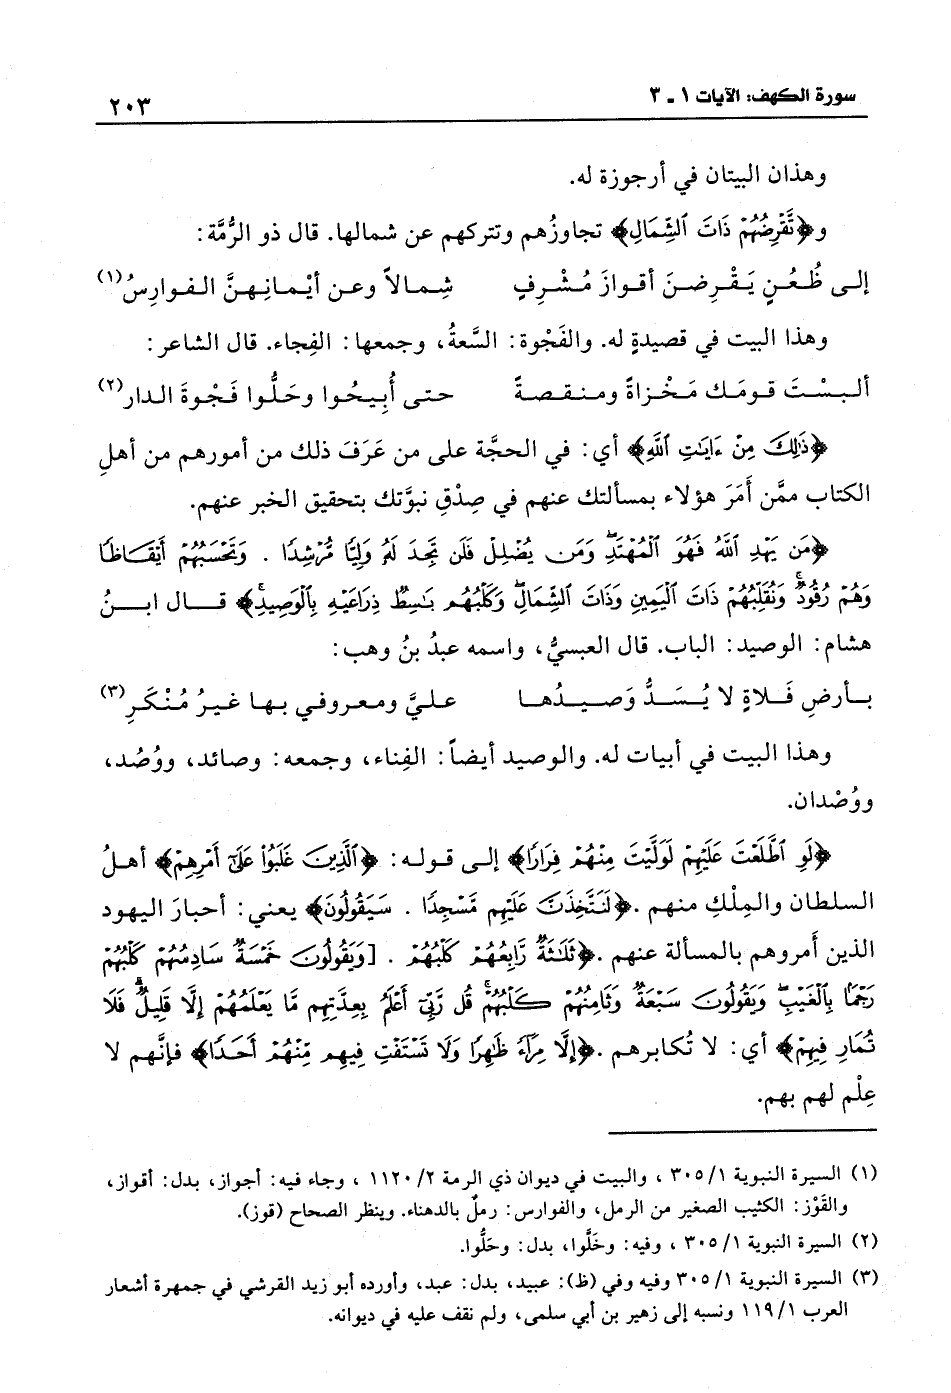 سورة الكهف: الآيات ١ - ٣
٢٠٣
وهذان البيتان في أرجوزة له.
و﴿تَّقْرِضُهُمْ ذَاتَ ٱلشِّمَالِ﴾ تجاوزُهم وتتركهم عن شمالها. قال ذو الرُّمَّة:
إلى ظُعُنٍ يَقْرِضنَ أقوازَ مُشْرِفٍ شِمالاً وعن أيْمانِهنَّ الفوارِسُ(١)
وهذا البيت في قصيدةٍ له. والفَجْوة: السَّعةُ، وجمعها: الفِجاء. قال الشاعر:
ألبسْتَ قومَك مَخْزاةً ومنقصةً حتى أُبِيحُوا وحَلُّوا فَجْوةَ الدار(٢)
﴿ذَٰلِكَ مِنْ ءَايَٰتِ ٱللَّهِ﴾ أي: في الحجَّة على من عَرَفَ ذلك من أمورهم من أهلِ
الكتاب ممَّن أَمَرَ هؤلاء بمسألتك عنهم في صِدْقِ نبوَّتك بتحقيق الخبر عنهم.
﴿مَن يَهْدِ ٱللَّهُ فَهُوَ ٱلْمُهْتَدِۖ وَمَن يُضْلِلْ فَلَن تَجِدَ لَهُۥ وَلِيًّا مُّرْشِدًا . وَتَحْسَبُهُمْ أَيْقَاظًا
وَهُمْ رُقُودٌۚ وَنُقَلِّبُهُمْ ذَاتَ ٱلْيَمِينِ وَذَاتَ ٱلشِّمَالِۖ وَكَلْبُهُم بَٰسِطٌ ذِرَاعَيْهِ بِٱلْوَصِيدِۚ﴾ قال ابنُ
هشام: الوصيد: الباب. قال العبسيُّ، واسمه عبدُ بنُ وهب:
بأرضِ فَلاةٍ لا يُسَدُّ وَصيدُها عليَّ ومعروفي بها غيرُ مُنْكَرِ(٣)
وهذا البيت في أبيات له. والوصيد أيضاً: الفِناء، وجمعه: وصائد، ووُصُد،
ووُصْدان.
﴿لَوِ ٱطَّلَعْتَ عَلَيْهِمْ لَوَلَّيْتَ مِنْهُمْ فِرَارًا﴾ إلى قوله: ﴿ٱلَّذِينَ غَلَبُوا۟ عَلَىٰٓ أَمْرِهِمْ﴾ أهلُ
السلطان والمِلْكِ منهم .﴿لَنَتَّخِذَنَّ عَلَيْهِم مَّسْجِدًا . سَيَقُولُونَ﴾ يعني: أحبارَ اليهود
الذين أَمروهم بالمسألة عنهم .﴿ثَلَٰثَةٌ رَّابِعُهُمْ كَلْبُهُمْ . [وَيَقُولُونَ خَمْسَةٌ سَادِسُهُمْ كَلْبُهُمْ
رَجْمًۢا بِٱلْغَيْبِۖ وَيَقُولُونَ سَبْعَةٌ وَثَامِنُهُمْ كَلْبُهُمْۚ قُل رَّبِّىٓ أَعْلَمُ بِعِدَّتِهِم مَّا يَعْلَمُهُمْ إِلَّا قَلِيلٌۗ فَلَا
تُمَارِ فِيهِمْ﴾ أي: لا تُكابرهم .﴿إِلَّا مِرَآءً ظَٰهِرًا وَلَا تَسْتَفْتِ فِيهِم مِّنْهُمْ أَحَدًا﴾ فإنَّهم لا
عِلْم لهم بهم.
(١) السيرة النبوية ٣٠٥/١ ، والبيت في ديوان ذي الرمة ١١٢٠/٢ ، وجاء فيه: أجواز، بدل: أقواز،
والقَوْز: الكثيب الصغير من الرمل، والفوارس: رملٌ بالدهناء. وينظر الصحاح (قوز).
(٢) السيرة النبوية ٣٠٥/١ ، وفيه: وخَلَّوا، بدل: وحَلُّوا.
(٣) السيرة النبوية ٣٠٥/١ وفيه وفي (ظ): عبيد، بدل: عبد، وأورده أبو زيد القرشي في جمهرة أشعار
العرب ١١٩/١ ونسبه إلى زهير بن أبي سلمى، ولم نقف عليه في ديوانه.